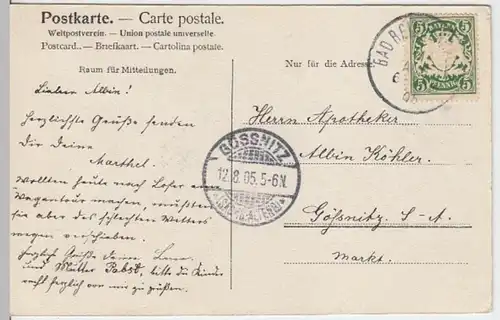 Postkarte. — Carte postale.
Weltpostverein. — Union postale universelle.
Postcard. — Briefkaart. — Cartolina postale.
Raum für Mitteilungen.
Nur für die Adresse
Lieber Albin!
Herzlichste Grüße senden
Dir Deine
Marthel.
Wollten heute nach Lofer eine
Wagentour machen, mußten
sie aber des schlechten Wetters
wegen verschieben.
Herzliche Grüße Deine
und Mutter Pabst, bitte die Kinder
recht herzlich von mir zu grüßen.
BAD RE
5 5
PFENNIG
5 5
GÖSSNITZ
12.8.05.5-6N.
Herrn Apotheker
Albin Köhler.
Gößnitz S.-A.
Markt.